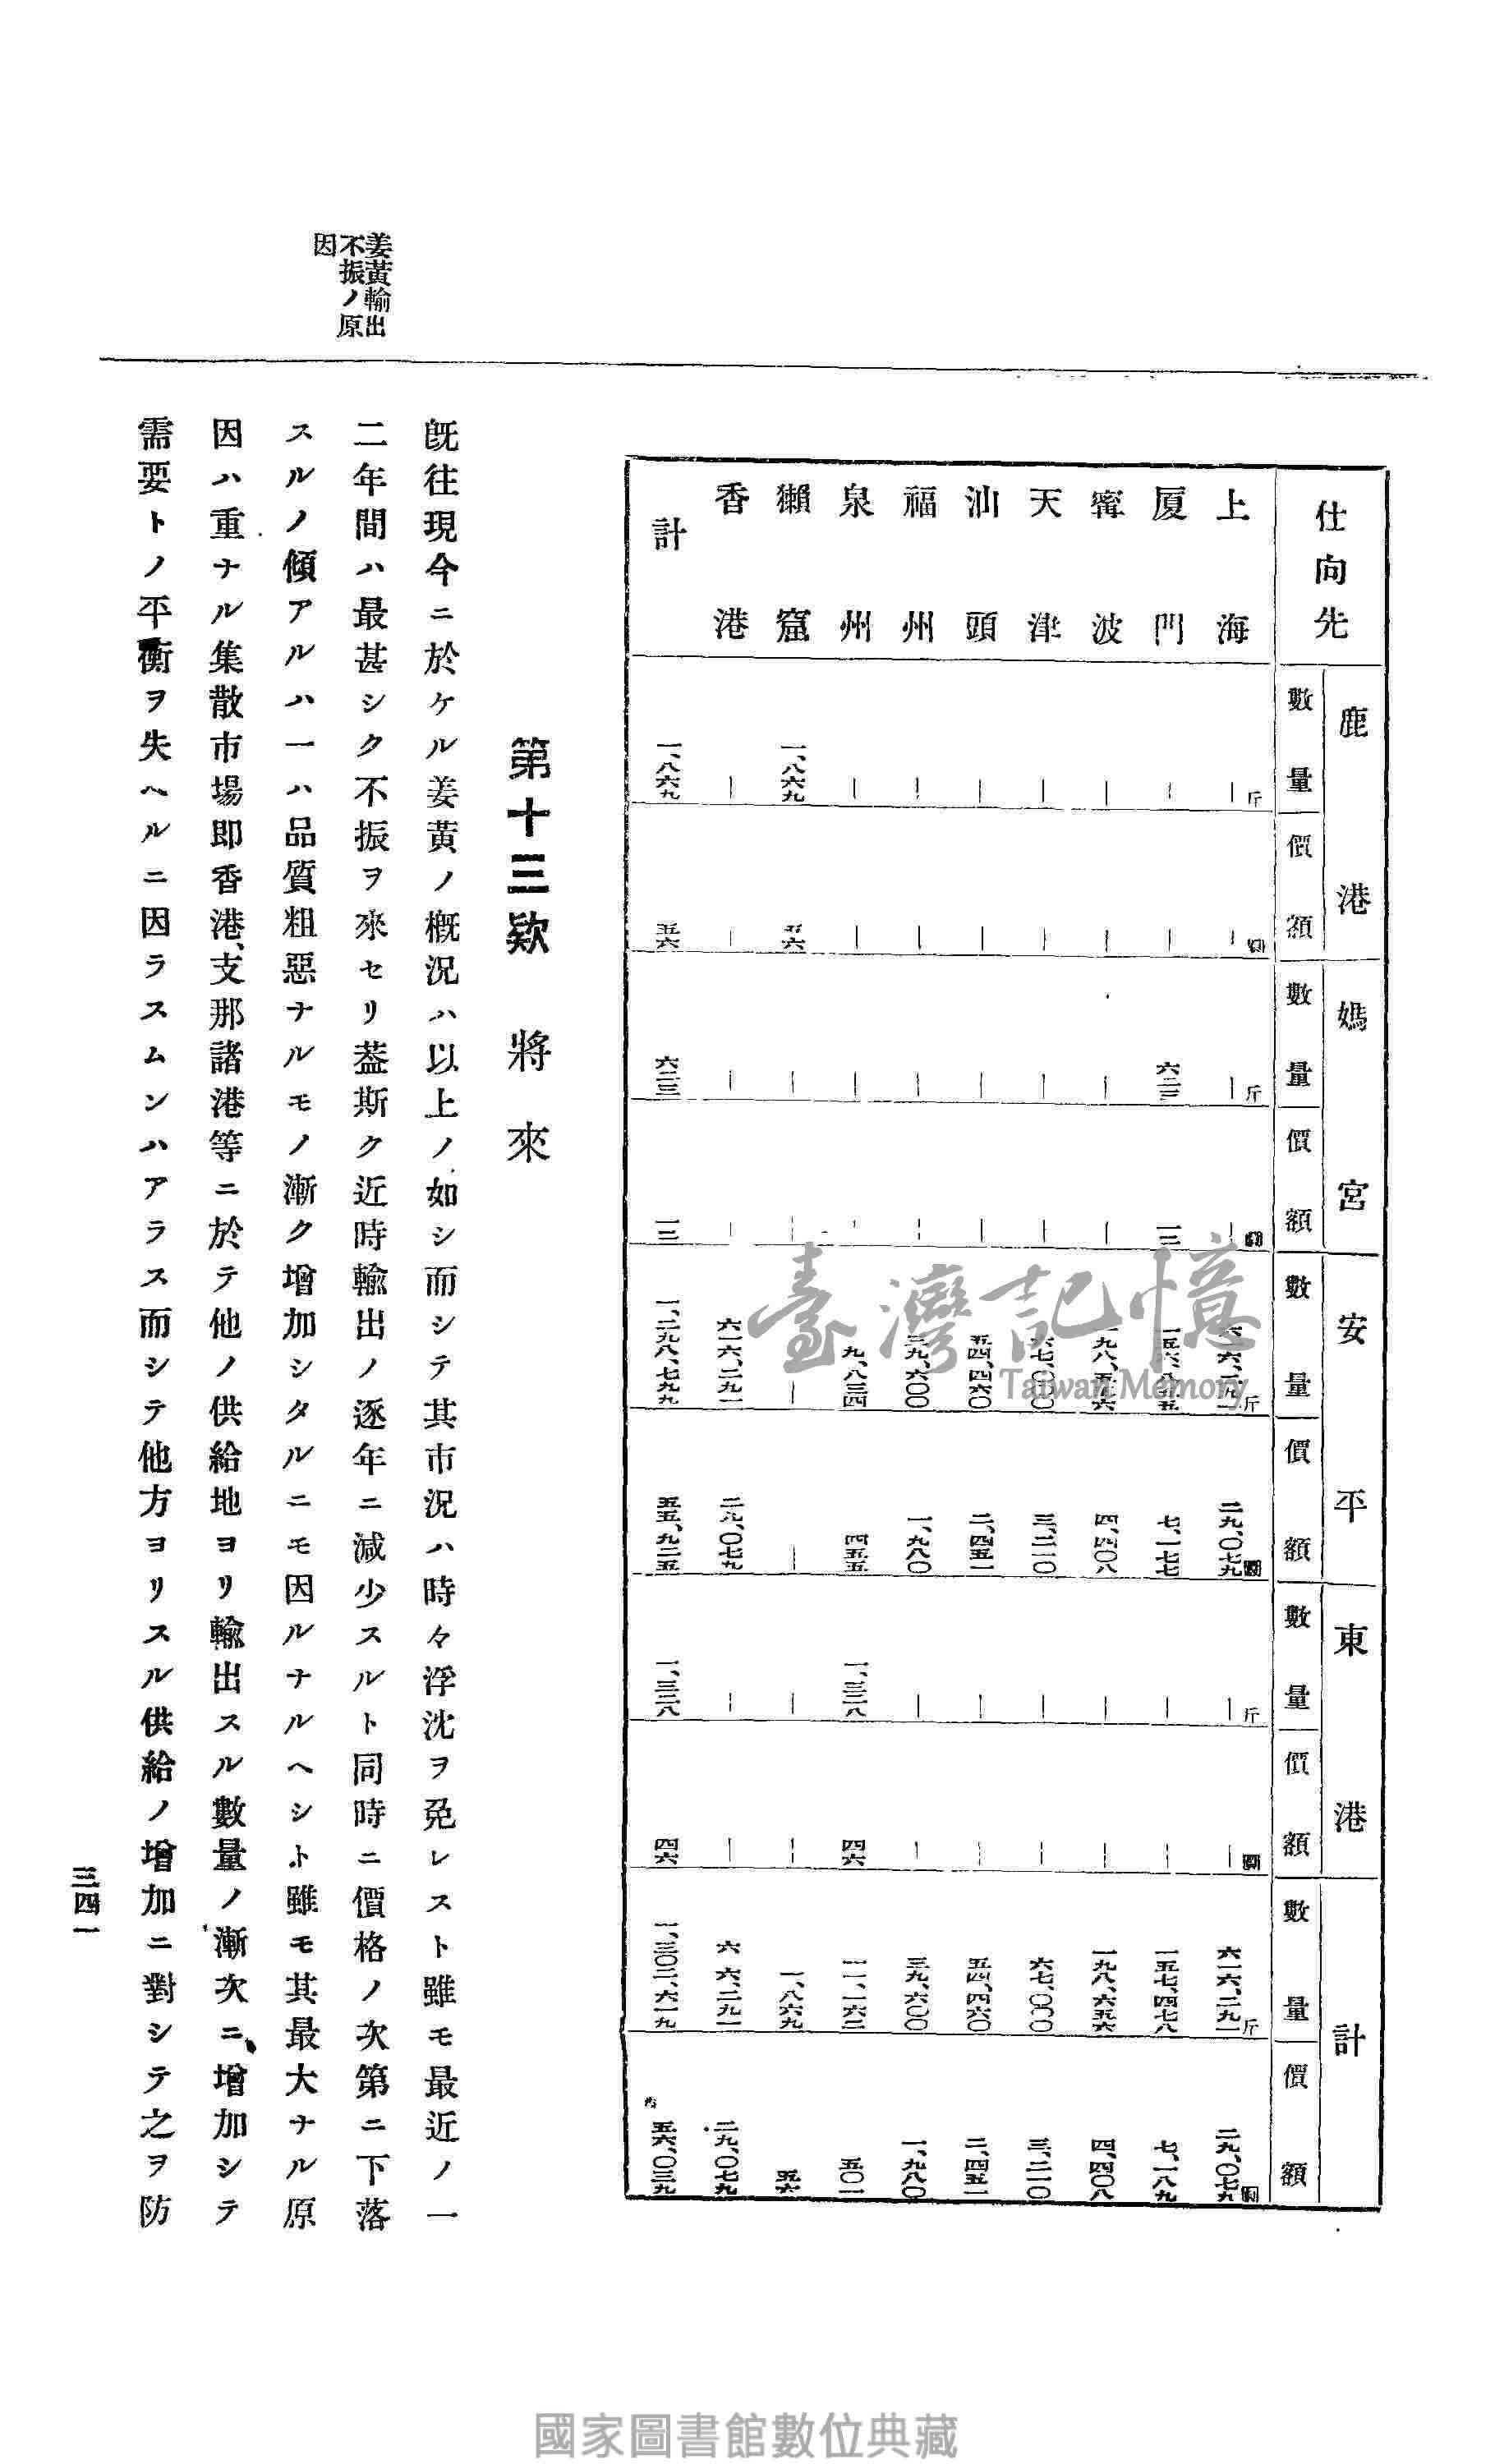 仕向先
鹿港
數量
價額
媽宮
數量
價額
安平
數量
價額
東港
數量
價額
計
數量
價額
上海 斤 | 圓 | 斤 | 圓 | 斤 二九、〇七九圓 | 斤 | 圓 六一六、二九一斤 二九、〇七九圓
厦門 | | 六二三 一三 七、一七七 | | 一五七、四七八 七、一八九
寗波 | | | | 四、四〇八 | | 一九八、六五六 四、四〇八
天津 | | | | 三、二一〇 | | 六七、〇〇〇 三、二一〇
汕頭 | | | | 五四、四六〇 二、四五一 | | 五四、四六〇 二、四五一
福州 | | | | 三九、六〇〇 一、九八〇 | | 三九、六〇〇 一、九八〇
泉州 | | | | 九、八三四 四五五 一、三二八 四六 一一、一六二 五〇一
獺窟 一、八六九 五六 | | | | | | 一、八六九 五六
香港 | | | | 六一六、二九一 二九、〇七九 | | 六 六、二九一 二九、〇七九
計 一、八六九 五六 六二三 一三 一、二九八、七九九 五五、九二五 一、三二八 四六 一、三〇二、六一九 五六、〇三九
第十三欵 將來
姜黃輸出
不振ノ原
因
既往現今ニ於ケル姜黃ノ概況ハ以上ノ如シ而シテ其市況ハ時々浮沈ヲ免レスト雖モ最近ノ一
二年間ハ最甚シク不振ヲ來セリ葢斯ク近時輸出ノ逐年ニ減少スルト同時ニ價格ノ次第ニ下落
スルノ傾アルハ一ハ品質粗惡ナルモノ漸ク增加シタルニモ因ルナルヘシト雖モ其最大ナル原
因ハ重ナル集散市場即香港、支那諸港等ニ於テ他ノ供給地ヨリ輸出スル數量ノ漸次ニ增加シテ
需要トノ平衡ヲ失ヘルニ因ラスムンハアラス而シテ他方ヨリスル供給ノ增加ニ對シテ之ヲ防
三四一
臺灣記憶
Taiwan Memory
國家圖書館數位典藏